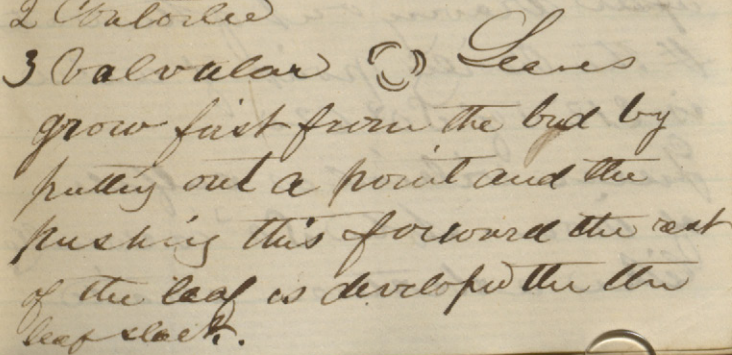 2 Contorted
3 Valvular Leaves
grow first from the bud by
putting out a point and the
pushing this forward the rest
of the leaf is developed the the
leaf stock.